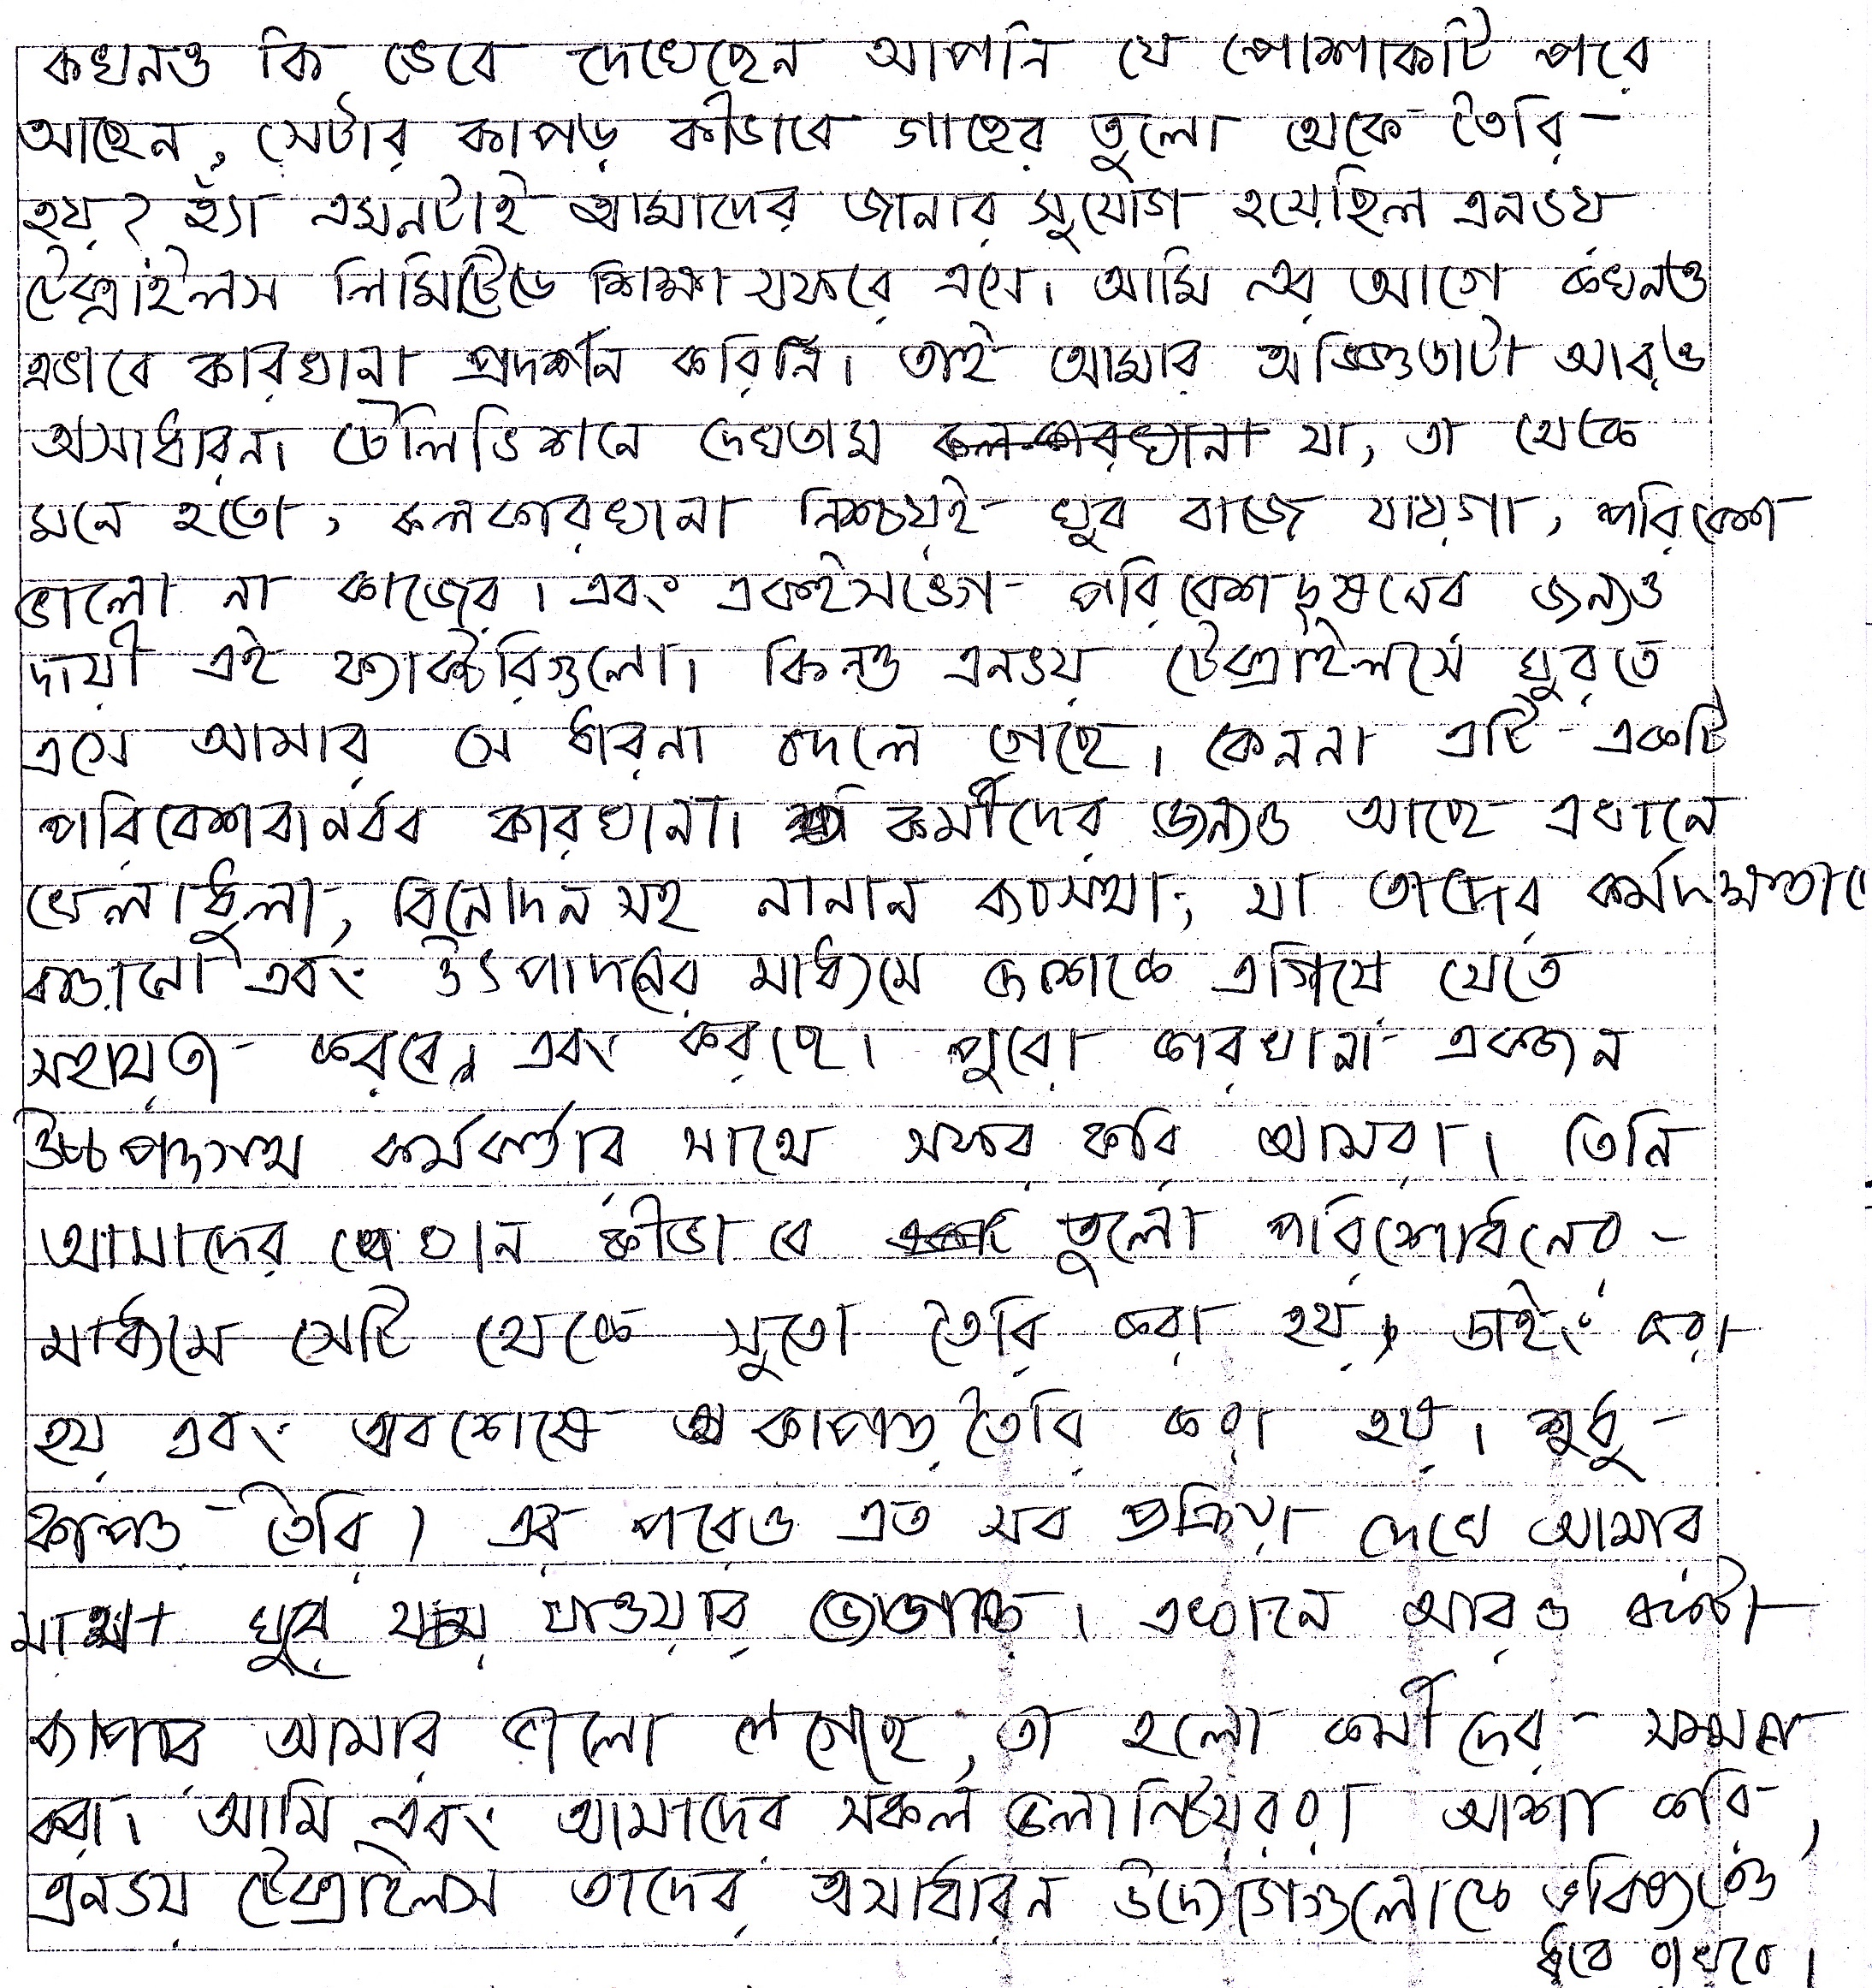 কখনও কি ভেবে দেখেছেন আপনি যে পোশাকটি পরে
আছেন, সেটার কাপড় কীভাবে গাছের তুলো থেকে তৈরি
হয়? হ্যাঁ এমনটাই আমাদের জানার সুযোগ হয়েছিল এনভয়
টেক্সটাইলস লিমিটেডে শিক্ষা সফরে এসে। আমি এর আগে কখনও
এভাবে কারখানা প্রদর্শন করিনি। তাই আমার অভিজ্ঞতাটা আরও
অসাধারন। টেলিভিশনে দেখতাম যা, তা থেকে
মনে হতো, কলকারখানা নিশ্চয়ই খুব বাজে যায়গা, পরিবেশ
ভালো না কাজের। এবং একইসঙ্গে পরিবেশদূষণের জন্যও
দায়ী এই ফ্যাক্টরিগুলো। কিন্তু এনভয় টেক্সটাইলসে ঘুরতে
এসে আমার সে ধারনা বদলে গেছে। কেননা এটি একটি
পরিবেশবান্ধব কারখানা। কর্মীদের জন্যও আছে এখানে
খেলাধুলা, বিনোদনসহ নানান ব্যবস্থা; যা তাদের কর্মদক্ষতা
বাড়ানো এবং উৎপাদনের মাধ্যমে দেশকে এগিয়ে যেতে
সহায়তা করবে এবং করছে। পুরো কারখানা একজন
উচ্চপদস্থ কর্মকর্তার সাথে সফর করি আমরা। তিনি
আমাদের দেখান কীভাবে তুলো পরিশোধনের
মাধ্যমে সেটি থেকে সুতো তৈরি করা হয়, ডাইং করা
হয় এবং অবশেষে কাপড় তৈরি করা হয়। শুধু
কাপড় তৈরি। এর পরেও এত সব প্রক্রিয়া দেখে আমার
মাথা ঘুরে যাওয়ার জোগাড়। এখানে আরও একটা
ব্যাপার আমার ভালো লেগেছে, তা হলো কর্মীদের সম্মান
করা। আমি এবং আমাদের সকল ভলান্টিয়ররা আশা করি,
এনভয় টেক্সটাইলস তাদের অসাধারন উদ্যোগগুলোকে ভবিষ্যতেও
ধরে রাখবে।